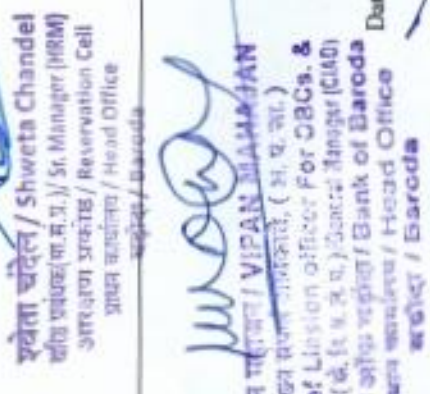 श्वेता चंदेल / Shweta Chandel
वरिष्ठ प्रबंधक(मा.सं.प्र.)/ Sr. Manager (HRM)
आरक्षण प्रकोष्ठ / Reservation Cell
प्रधान कार्यालय / Head Office
बड़ौदा / Baroda
महाजन / VIPAN MAHAJAN
f Liasion officer For OBCs. &
General Manager (CIAD)
ऑफ बड़ौदा / Bank of Baroda
कार्यालय / Head Office
बड़ौदा / Baroda
Dat